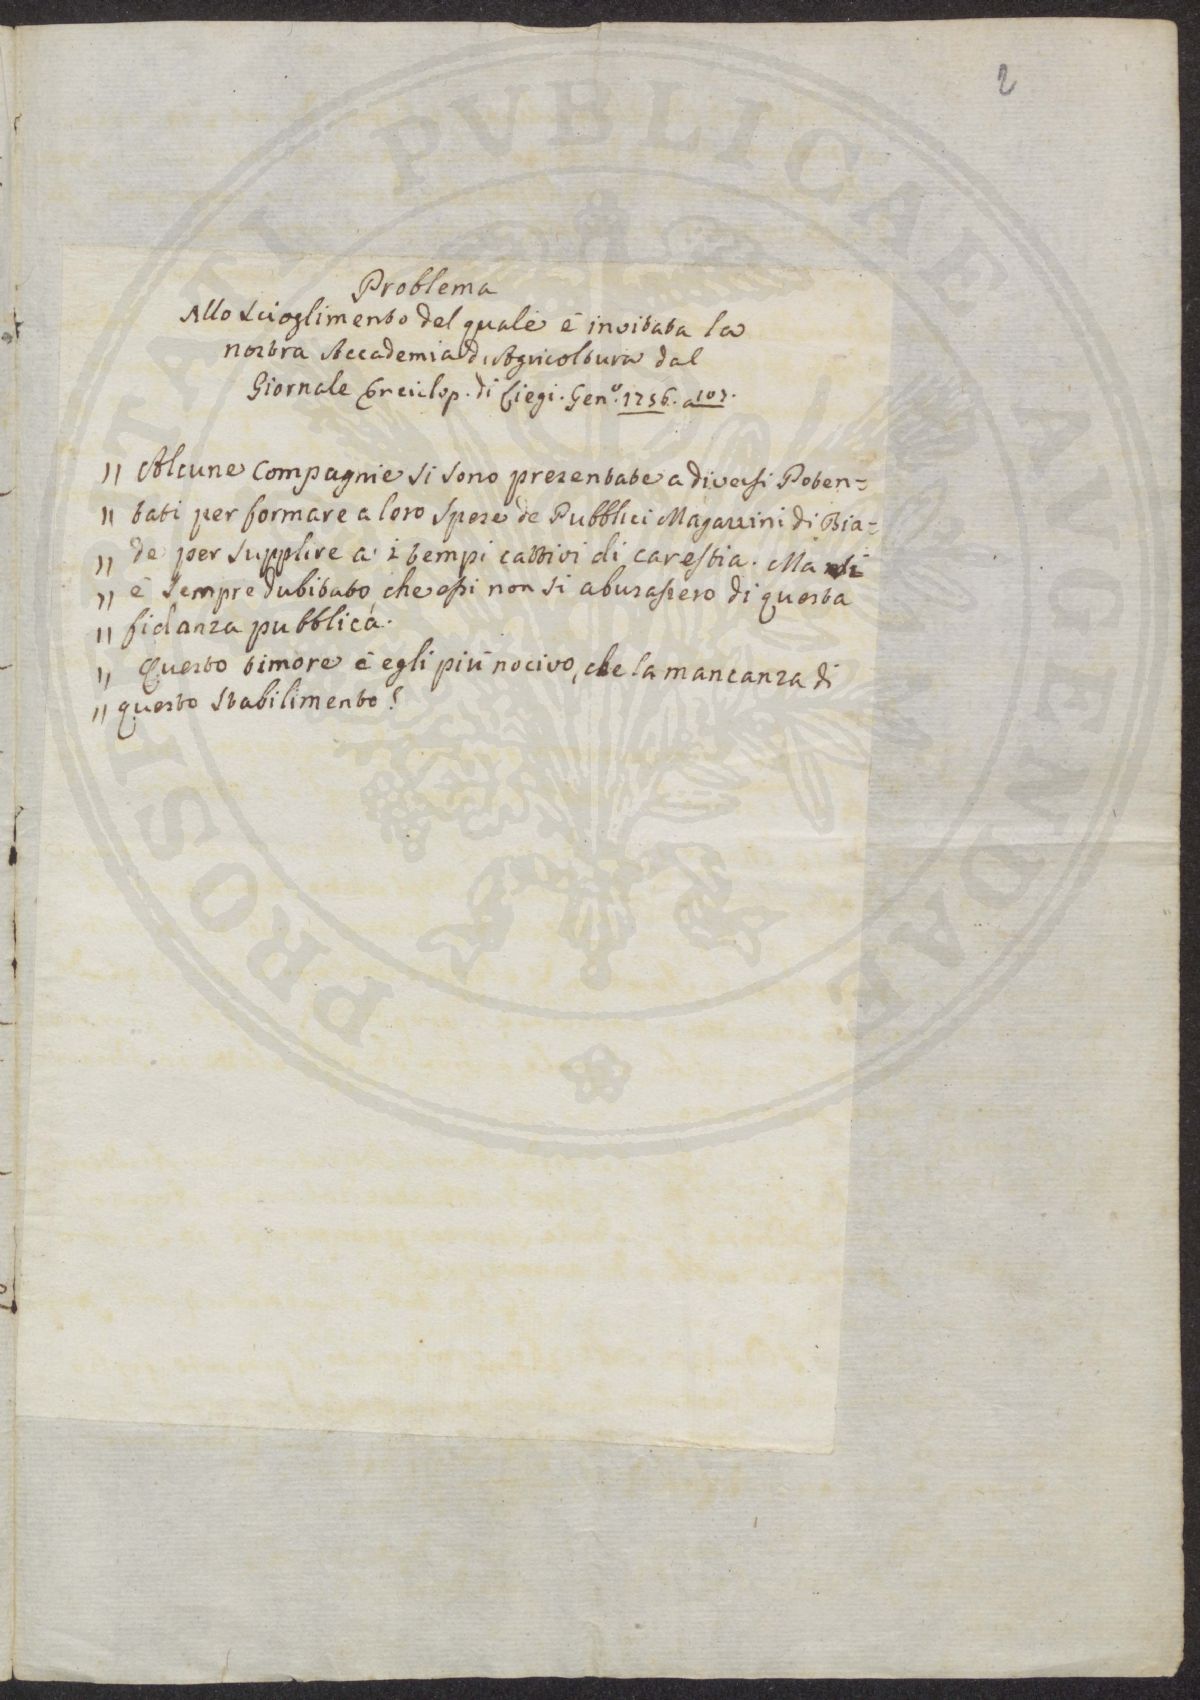 2
PROSPERITATI PUBLICAE AUGENDAE
Problema
Allo Scioglimento del quale è invitata la
nostra Accademia di Agricoltura dal
Giornale Enciclop. di Liegi. Gen.º 1756. a 107.
" Alcune Compagnie si sono presentate a diversi Poten=
" tati per formare a loro Spese de Pubblici Magazzini di Bia=
" de per supplire a' i tempi cattivi di carestia. Ma si
" è sempre dubitato, che essi non si abusassero di questa
" fidanza pubblica.
" Questo timore è egli più nocivo, che la mancanza di
" questo Stabilimento?